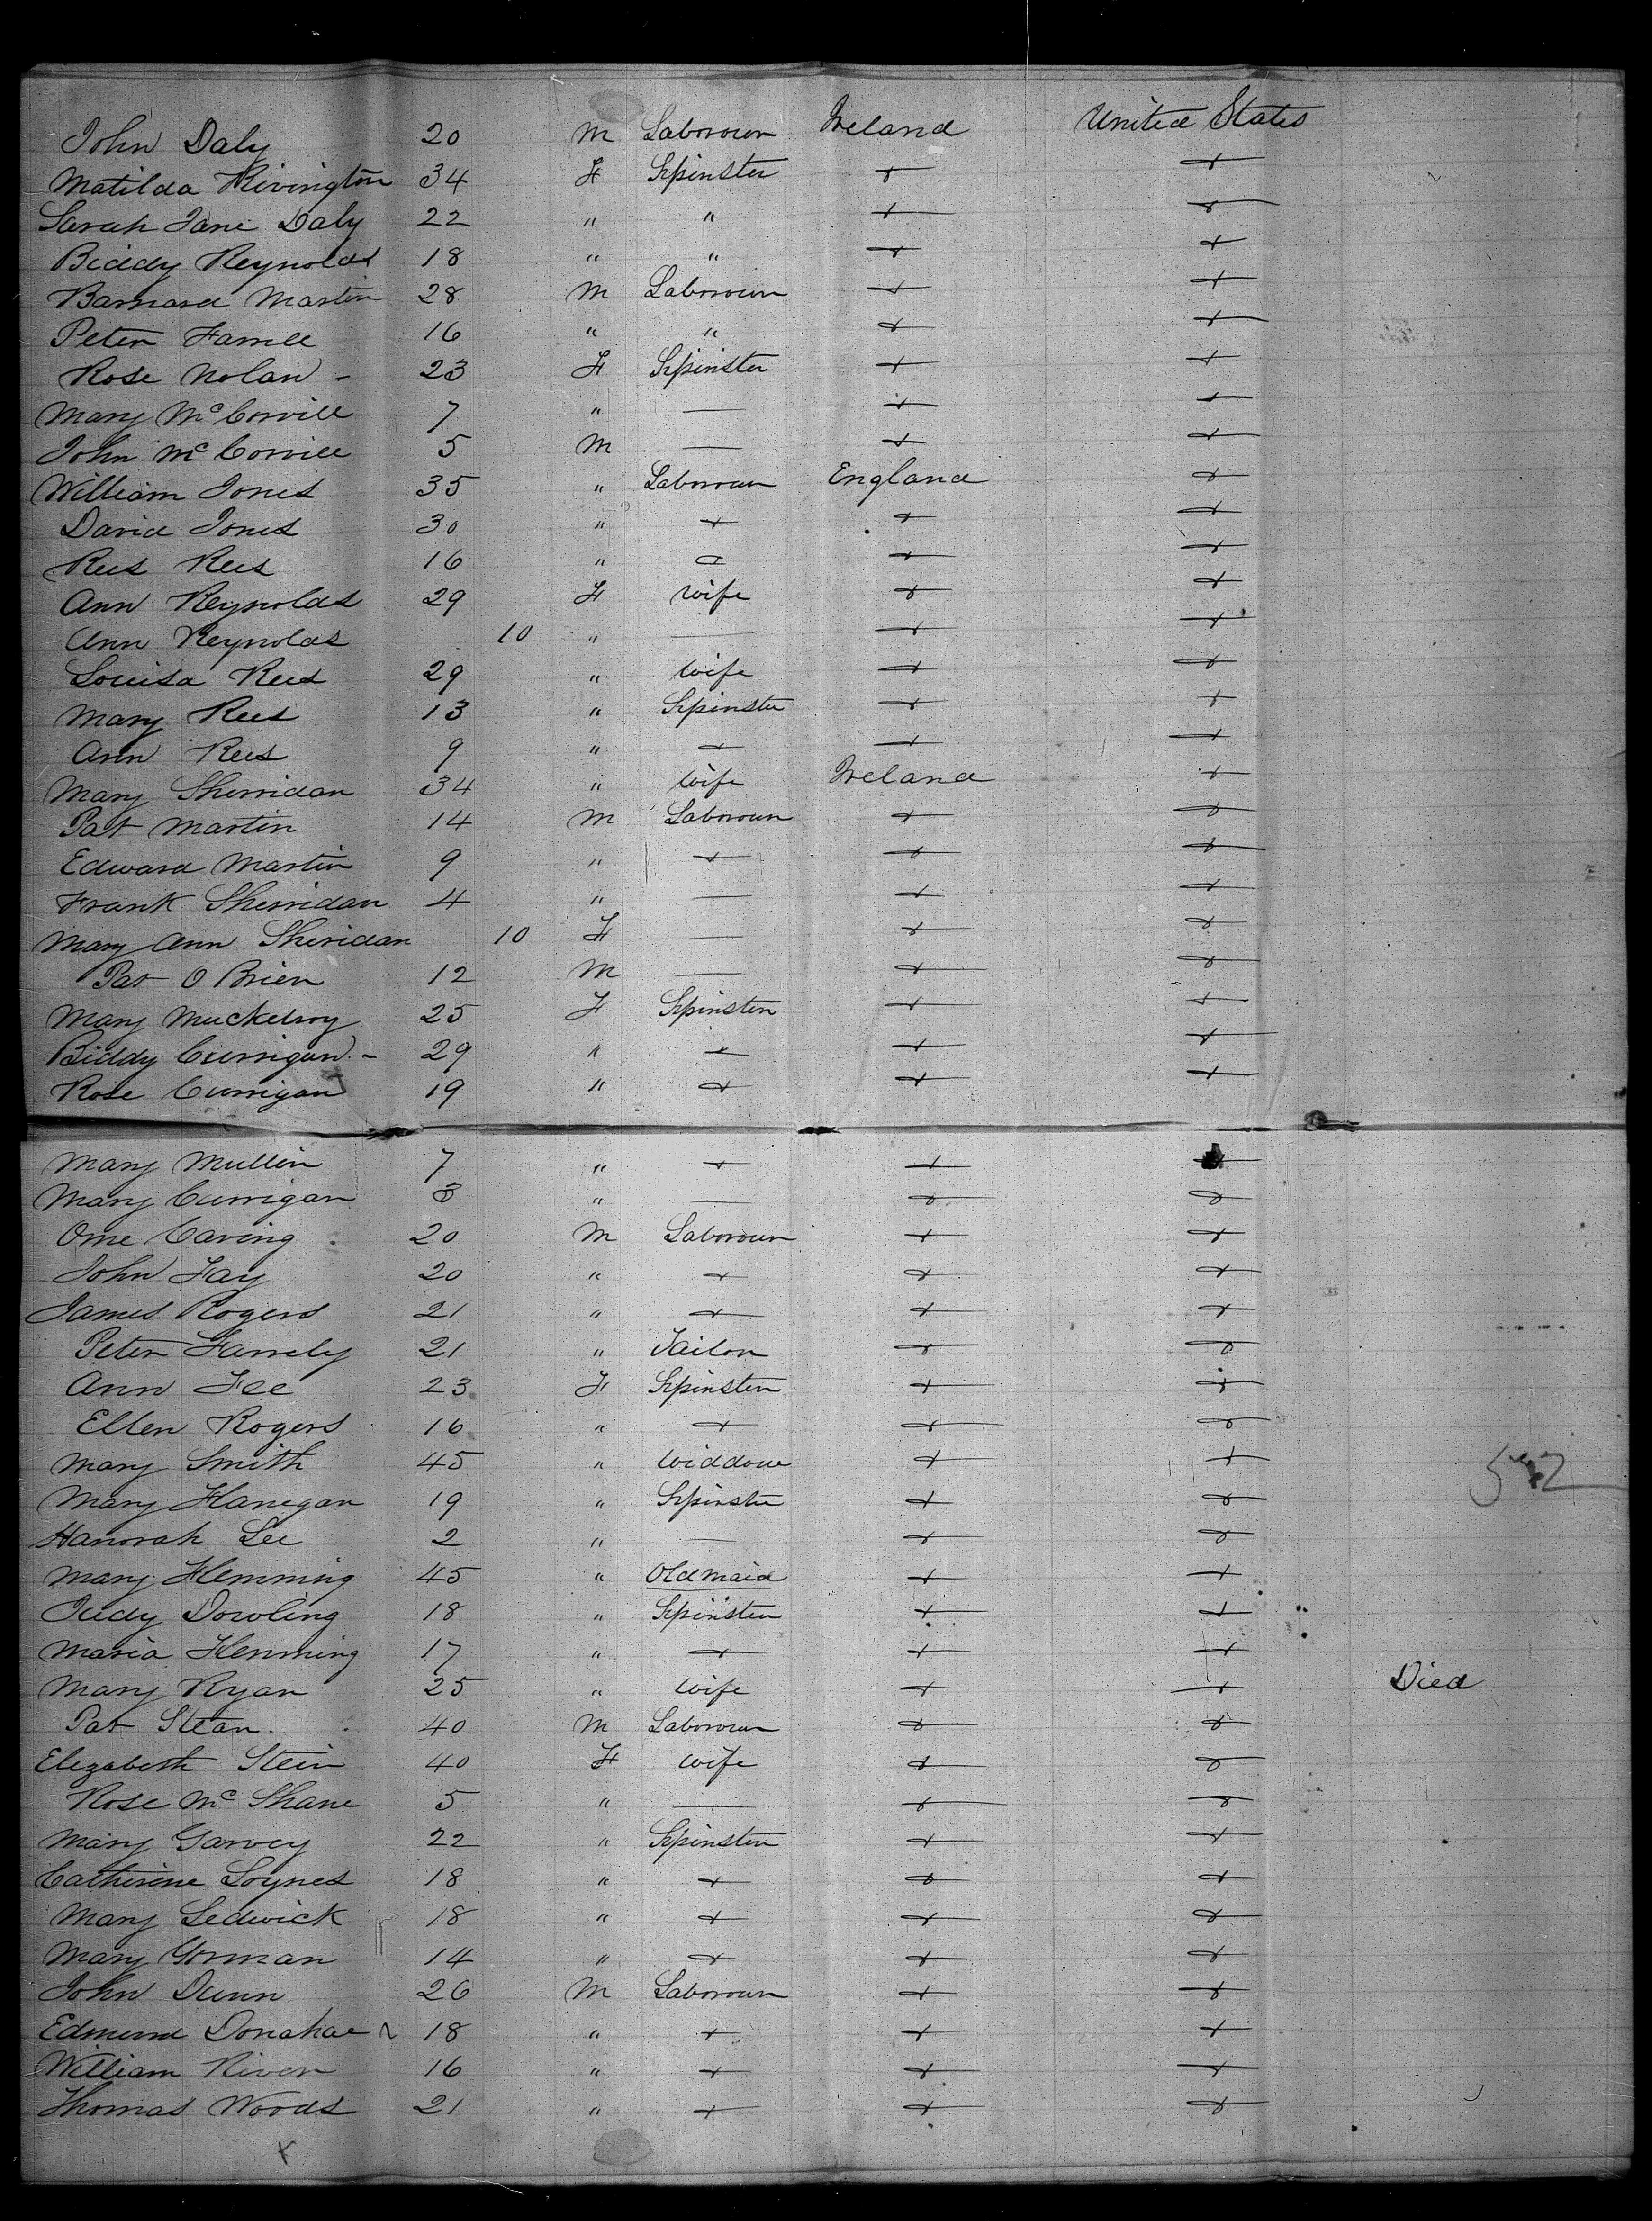 John Daly 20 M Labourer Ireland United States
Matilda Rivington 34 F Spinster + +
Sarah Jane Daly 22 " " + +
Biddy Reynolds 18 " " + +
Barnard Martin 28 M Labourer + +
Peter Farrell 16 " " + +
Rose Nolan - 23 F Spinster + +
Mary Mc Corvill 7 " — + +
John Mc Corvill 5 M — + +
William Jones 35 " Labourer England +
David Jones 30 " + + +
Rees Rees 16 " + + +
Ann Reynolds 29 F Wife + +
Ann Reynolds 10 " — + +
Louisa Rees 29 " Wife + +
Mary Rees 13 " Spinster + +
Ann Rees 9 " + + +
Mary Sherridan 34 " Wife Ireland +
Pat Martin 14 M Labourer + +
Edward Martin 9 " + + +
Frank Sherridan 4 " — + +
Mary Ann Sheridan 10 F — + +
Pat O Brien 12 M — + +
Mary Muckelroy 25 F Spinster + +
Biddy Currigan - 29 " + + +
Rose Currigan 19 " + + +
Mary Mullin 7 " + + +
Mary Currigan 3 " — + +
Ome Caving 20 M Labourer + +
John Fay 20 " + + +
James Rogers 21 " + + +
Peter Farrely 21 " Tailor + +
Ann Fee 23 F Spinster + +
Ellen Rogers 16 " + + +
Mary Smith 45 " Widdow + +
Mary Flanegan 19 " Spinster + +
Hanorah Lee 2 " — + +
Mary Flemming 45 " Old maid + +
Judy Dowling 18 " Spinster + +
Maria Flemming 17 " + + +
Mary Ryan 25 " Wife + + Died
Pat Stean 40 M Labourer + +
Elizabeth Stein 40 F Wife + +
Rose Mc Shane 5 " — + +
Mary Garvey 22 " Spinster + +
Catherine Soynes 18 " + + +
Mary Sedwick 18 " + + +
Mary Gorman 14 " + + +
John Dunn 26 M Labourer + +
Edmund Donahae 18 " + + +
William River 16 " + + +
Thomas Woods 21 " + + +
x